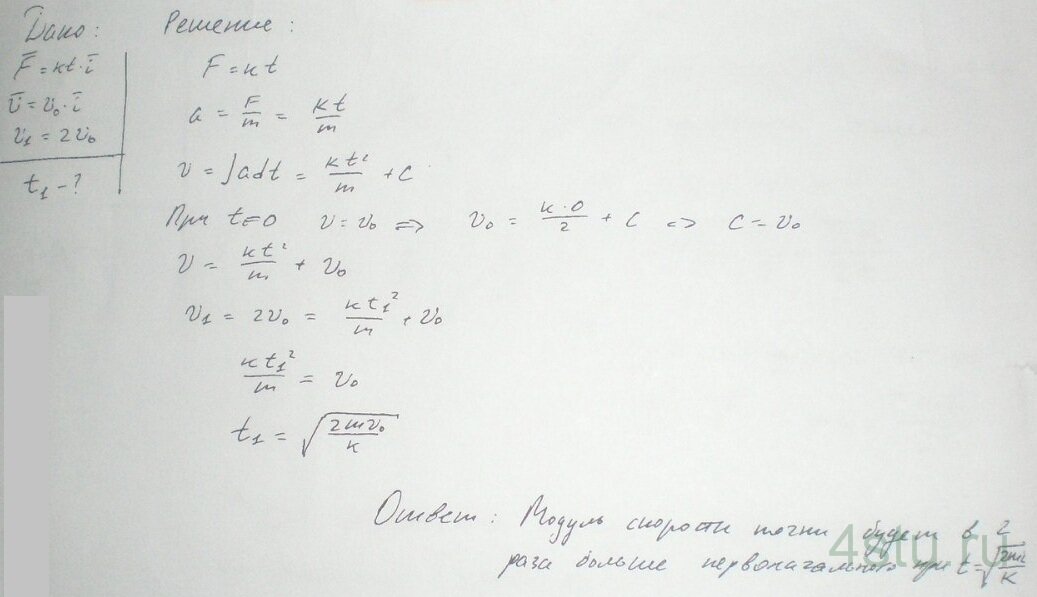 Дано:
F̄ = kt·ī
ῡ = υ₀·ī
υ₁ = 2υ₀
t₁ - ?
Решение:
F = kt
a = F/m = kt/m
υ = ∫adt = kt²/m + C
При t=0 υ=υ₀ => υ₀ = k·0/2 + C => C = υ₀
υ = kt²/m + υ₀
υ₁ = 2υ₀ = kt₁²/m + υ₀
kt₁²/m = υ₀
t₁ = √(2mυ₀/k)
Ответ: Модуль скорости точки будет в 2
раза больше первоначального при t=√(2mυ/k)
4stu.ru